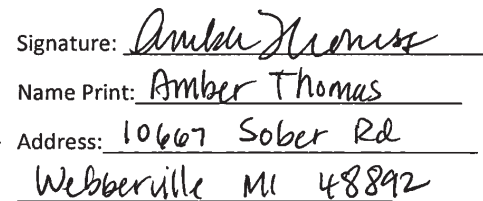 Signature: Amber Thomas
Name Print: Amber Thomas
Address: 10667 Sober Rd
Webberville MI 48892